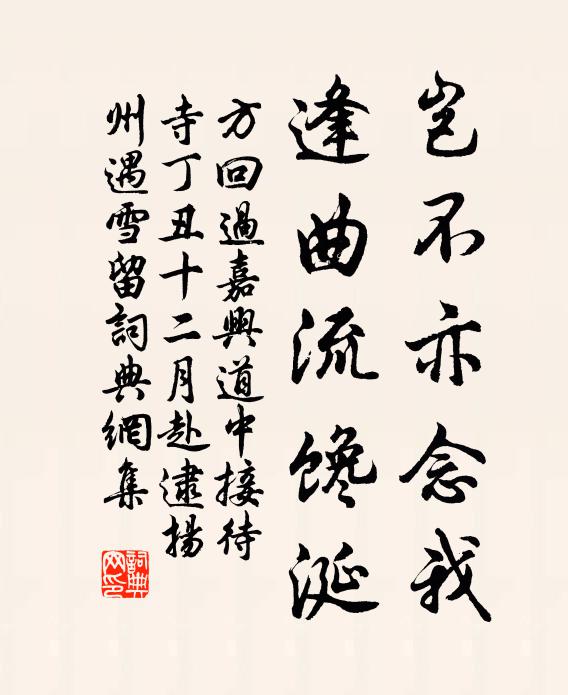 岂不亦念我
逢曲流馋涎
方回過嘉興道中接待
寺丁丑十二月赴逮揚
州遇雪留詞典網集
詞典網印